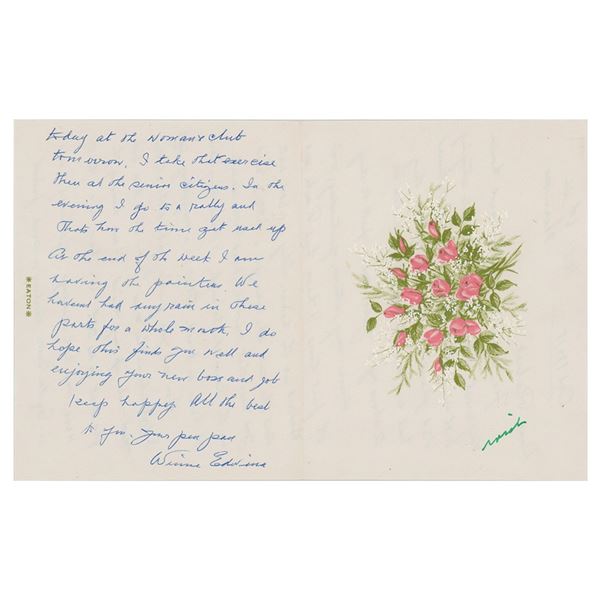 today at the Woman's club
tomorrow. I take that exercise
then at the senior citizens. In the
evening I go to a rally and
Thats how the time get used up
As the end of the week I am
having the painters. We
havent had any rain in these
parts for a whole month, I do
hope this finds you well and
enjoying your new boss and job
keep happy All the best
to you. your pen pal
Winnie Edwina
✲ EATON ✲